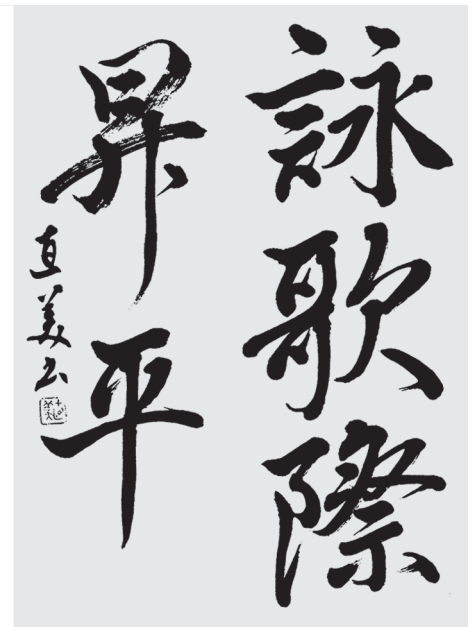 詠歌際
昇平
直美书